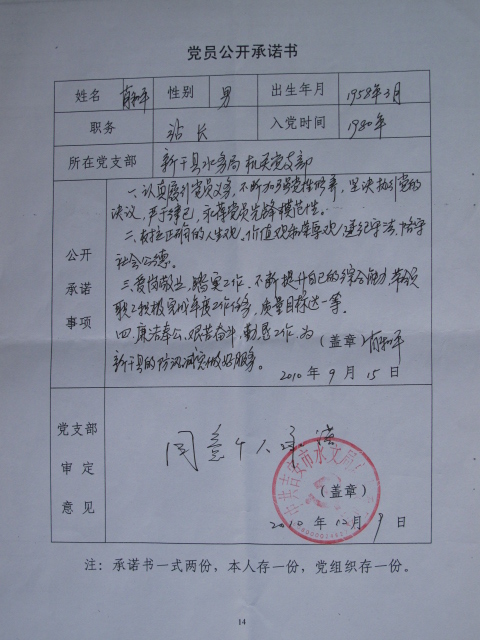 党员公开承诺书
姓名 肖和平 性别 男 出生年月 1958年3月
职务 站长 入党时间 1980年
所在党支部 新干县水务局机关党支部
公开承诺事项
一、认真履行党员义务,不断加强党性修养,坚决执行党的
决议,严于律己,永葆党员先锋模范性。
二、树立正确的人生观、价值观和荣辱观,遵纪守法,恪守
社会公德。
三、爱岗敬业、踏实工作,不断提升自己的综合能力,带领
职工积极完成年度工作任务,质量目标达一等。
四、廉洁奉公、艰苦奋斗,勤恳工作,为
新干县的防汛减灾做好服务。
(盖章)肖和平
2010年9月15日
党支部审定意见
同意个人承诺
中共吉安市水文局
(盖章)
2010年12月9日
注:承诺书一式两份,本人存一份,党组织存一份。
14